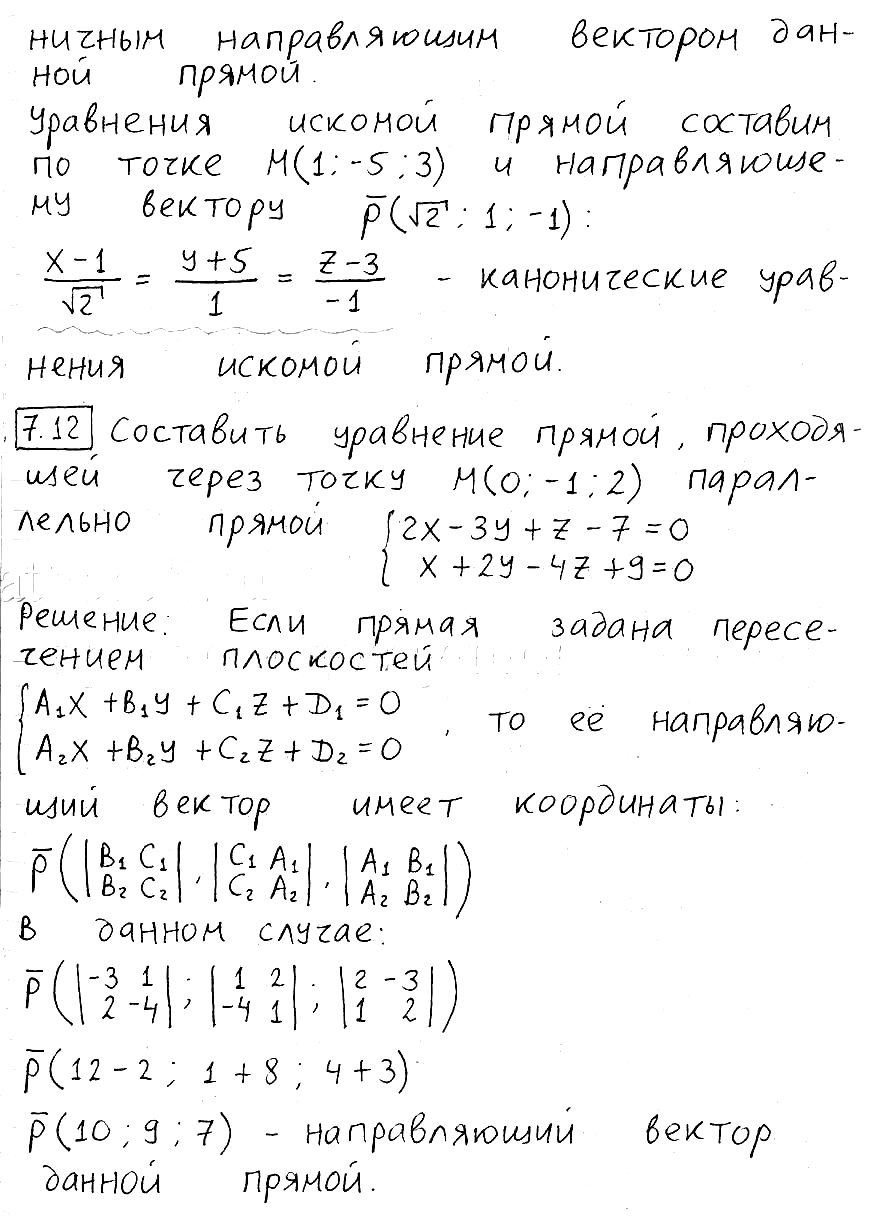 ничным направляющим вектором дан-
ной прямой.
Уравнения искомой прямой составим
по точке M(1; -5; 3) и направляюще-
му вектору p̄(√2; 1; -1):
(x-1)/√2 = (y+5)/1 = (z-3)/-1 - канонические урав-
нения искомой прямой.
7.12 Составить уравнение прямой, проходя-
щей через точку M(0; -1; 2) парал-
лельно прямой {2x - 3y + z - 7 = 0
x + 2y - 4z + 9 = 0
Решение: Если прямая задана пересе-
чением плоскостей
{A₁x + B₁y + C₁z + D₁ = 0
A₂x + B₂y + C₂z + D₂ = 0 , то её направляю-
щий вектор имеет координаты:
p̄(|B₁ C₁|, |C₁ A₁|, |A₁ B₁|)
|B₂ C₂| |C₂ A₂| |A₂ B₂|
В данном случае:
p̄(|-3 1|; |1 2|; |2 -3|)
|2 -4| |-4 1| |1 2|
p̄(12 - 2; 1 + 8; 4 + 3)
p̄(10; 9; 7) - направляющий вектор
данной прямой.